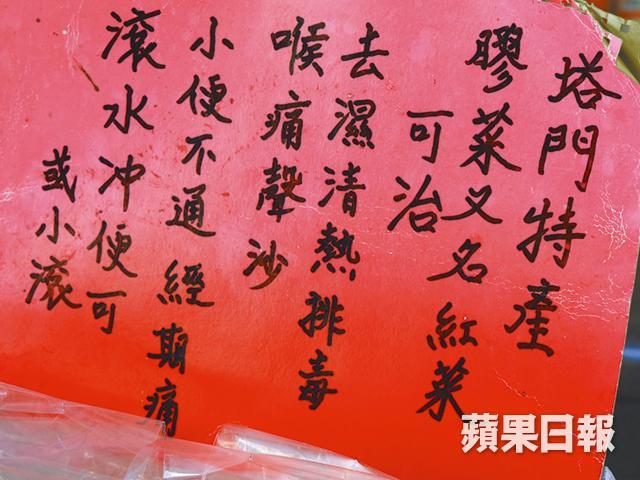 塔門特產
膠菜又名紅菜
可治
去濕清熱排毒
喉痛聲沙
小便不通經期痛
滾水冲便可
或小滾
蘋果日報